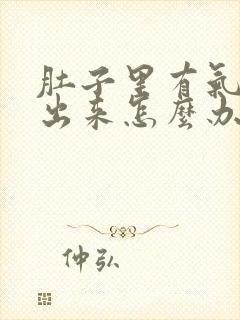 肚子里有氣
出来怎麽办
仲弘